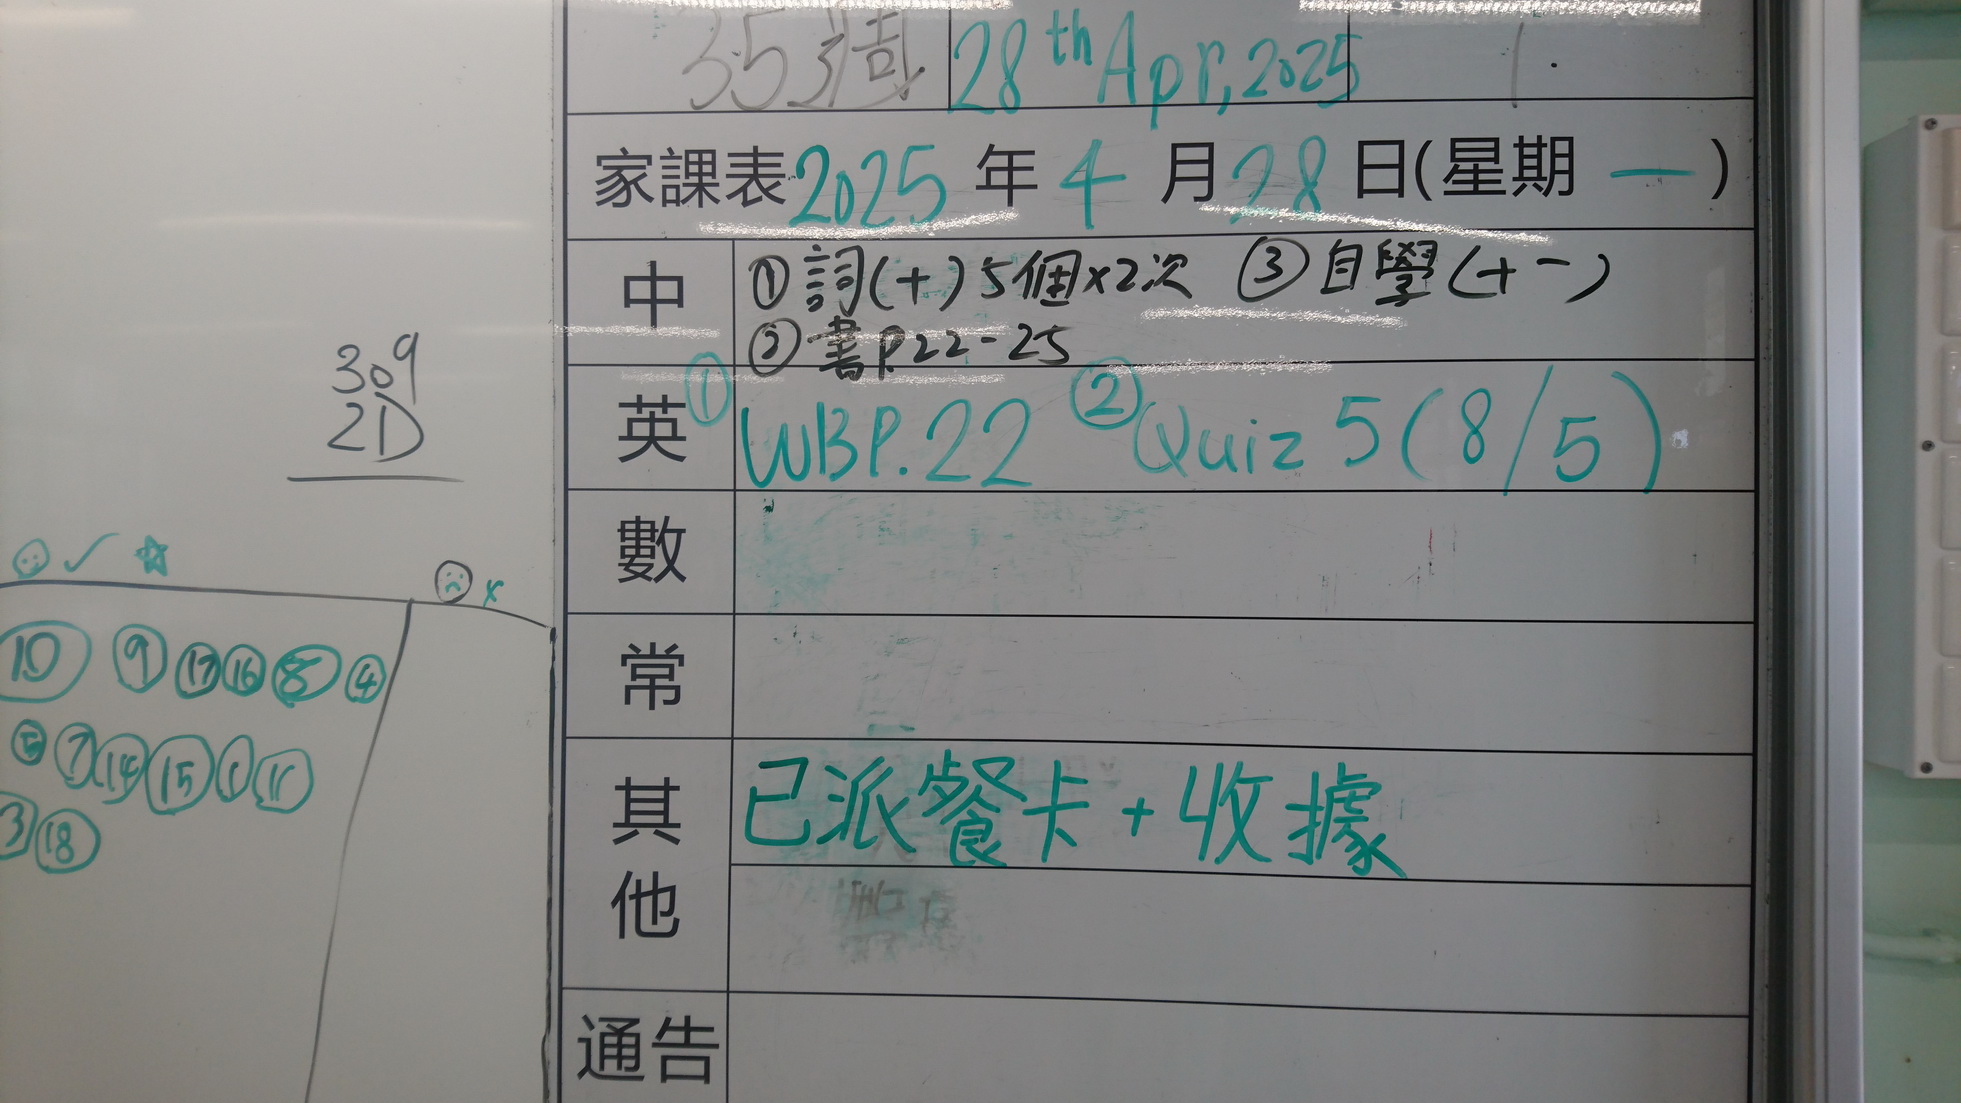 35週 28th Apr, 2025 1
家課表 2025 年 4 月 28 日(星期 一 )
中 ① 詞(十) 5個x2次 ③ 自學(十一)
② 書P.22-25
英 ① WB P.22 ② Quiz 5 (8/5)
數
常
其他 已派餐卡 + 收據
通告
309
2D
✓ ☆ x
10 9 17 16 8 4
5 7 14 15 1 11
3 18